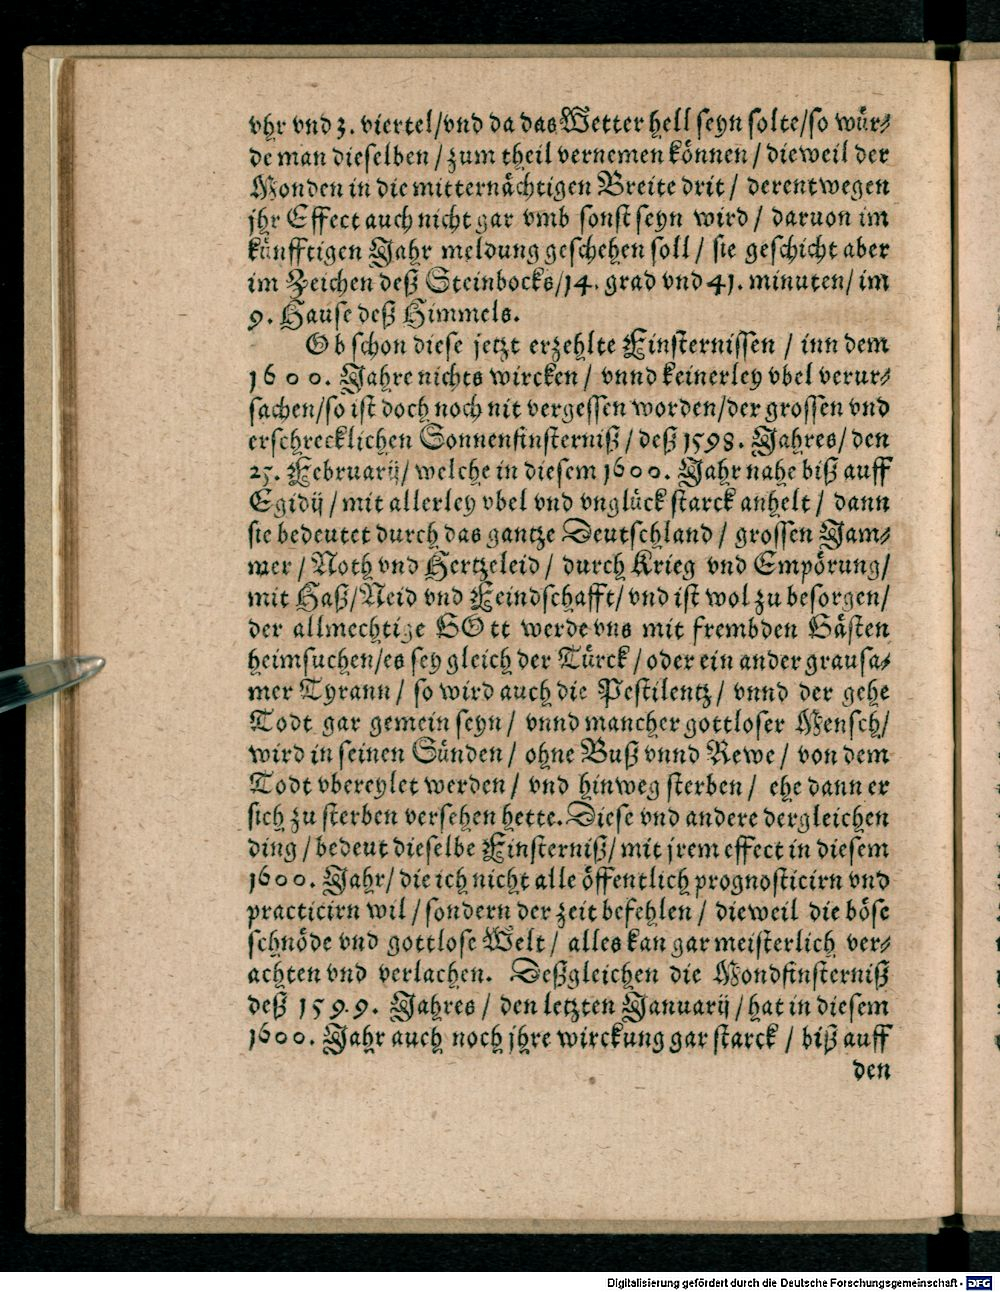 vhr vnd 3. viertel/vnd da das Wetter hell seyn solte/so wür⸗
de man dieselben / zum theil vernemen können / dieweil der
Monden in die mitternächtigen Breite drit / derentwegen
jhr Effect auch nicht gar vmb sonst seyn wird / daruon im
künfftigen Jahr meldung geschehen soll / sie geschicht aber
im Zeichen deß Steinbocks/14. grad vnd 41. minuten/ im
9. Hause deß Himmels.
Ob schon diese jetzt erzehlte Finsternissen / inn dem
1600. Jahre nichts wircken / vnnd keinerley vbel verur⸗
sachen/so ist doch noch nit vergessen worden/der grossen vnd
erschrecklichen Sonnenfinsterniß / deß 1598. Jahres/ den
25. Februarij/ welche in diesem 1600. Jahr nahe biß auff
Egidij / mit allerley vbel vnd vnglück starck anhelt / dann
sie bedeutet durch das gantze Deutschland / grossen Jam⸗
mer / Noth vnd Hertzeleid / durch Krieg vnd Empörung/
mit Haß/Neid vnd Feindschafft/ vnd ist wol zu besorgen/
der allmechtige GOtt werde vns mit frembden Gästen
heimsuchen/es sey gleich der Türck / oder ein ander grausa⸗
mer Tyrann / so wird auch die Pestilentz / vnnd der gehe
Todt gar gemein seyn / vnnd mancher gottloser Mensch/
wird in seinen Sünden / ohne Buß vnnd Rewe / von dem
Todt vbereylet werden / vnd hinweg sterben / ehe dann er
sich zu sterben versehen hette. Diese vnd andere dergleichen
ding / bedeut dieselbe Finsterniß/ mit jrem effect in diesem
1600. Jahr/ die ich nicht alle öffentlich prognosticirn vnd
practicirn wil / sondern der zeit befehlen / dieweil die böse
schnöde vnd gottlose Welt / alles kan gar meisterlich ver⸗
achten vnd verlachen. Deßgleichen die Mondfinsterniß
deß 1599. Jahres / den letzten Januarij / hat in diesem
1600. Jahr auch noch jhre wirckung gar starck / biß auff
den
Digitalisierung gefördert durch die Deutsche Forschungsgemeinschaft - DFG